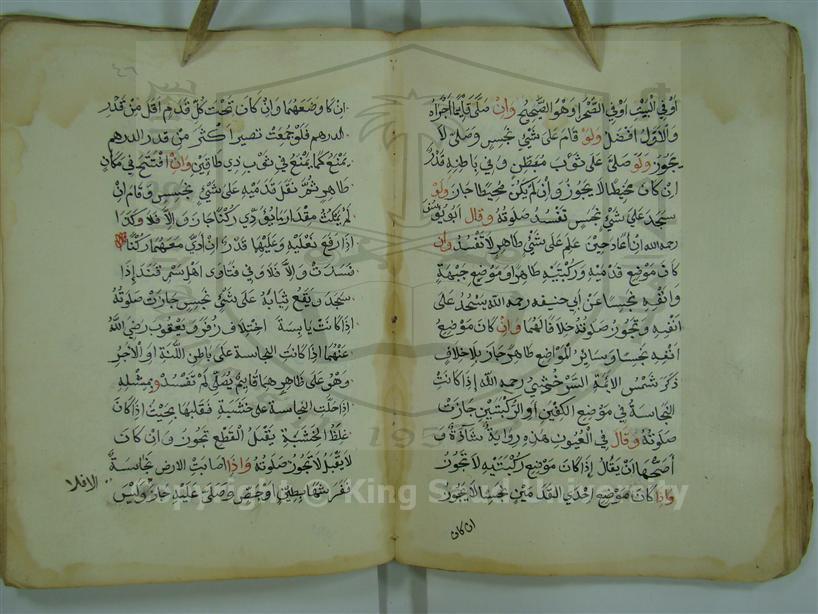 او في البيت او في الصحراء وهو الصحيح وان صلى قائما اجزاه
والاول افضل ولو قام على شيء نجس وصلى لا
يجوز ولو صلى على ثوب مبطن وفي باطنه قذر
ان كان مخيطا لا يجوز وان لم يكن مخيطا جاز ولو
سجد على شيء نجس تفسد صلوته وقال ابو يوسف
رحمه الله ان اعاد حين علم على شيء طاهر لا تفسد وان
كان موضع قدميه وركبتيه طاهرا وموضع جبهته
وانفه نجسا عن ابي حنيفه رحمه الله يسجد على
انفه وتجوز صلوته خلافا لهما وان كان موضع
انفه نجسا وسائر المواضع طاهر جاز بلا خلاف
ذكر شمس الائمة السرخسي رحمه الله اذا كانت
النجاسة في موضع الكفين او الركبتين جازت
صلوته وقال في العيون هذه رواية شاذة و
اصحها ان يقال اذا كان موضع ركبتيه لا تجوز
واذا كان موضع احدي القدمين نجسا لا يجوز
ان كان
٤٦
ان كا وضعهما وان كان تحت كل قدم اقل من قدر
الدرهم فلو جمعت تصير اكثر من قدر الدرهم
يمنع كما يمنع في ثوب ذي طاقين وان افتتح في مكان
طاهر ثم نقل قدميه على شيء نجس وقام ان
لم يمكث مقدار ما يؤدي ركنا جاز والا فلا وكذا
اذا رفع نعليه وعليها قذر ان ادي معهما ركنا
فسدت والا فلا وفي فتاوى اهل سمرقند اذا
سجد ويقع ثيابه على شيء نجس جازت صلوته
اذا كانت يابسة اختلاف زفر ويعقوب رضي الله
عنهما اذا كانت النجاسة على باطن اللبنة او الاجر
وهو على ظاهرها قايم يصلي لم تفسد وبمثله
اذا حلت النجاسة على خشبة فقلبها بحيث اذا كان
غلظ الخشبة يقبل القطع تجوز وان كان
لا يقبل لا تجوز صلوته واذا اصابت الارض نجاسة
ففرشها بطين او جص وصلى عليه جاز وليس
الا فلا
copyright © King Saud University
1957